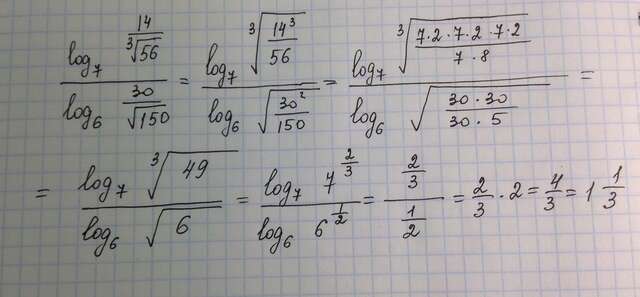 log₇ 14/∛56 / log₆ 30/√150 = log₇ ∛(14³/56) / log₆ √(30²/150) = log₇ ∛(7·2·7·2·7·2/7·8) / log₆ √(30·30/30·5) =
= log₇ ∛49 / log₆ √6 = log₇ 7^(2/3) / log₆ 6^(1/2) = 2/3 / 1/2 = 2/3 · 2 = 4/3 = 1 1/3